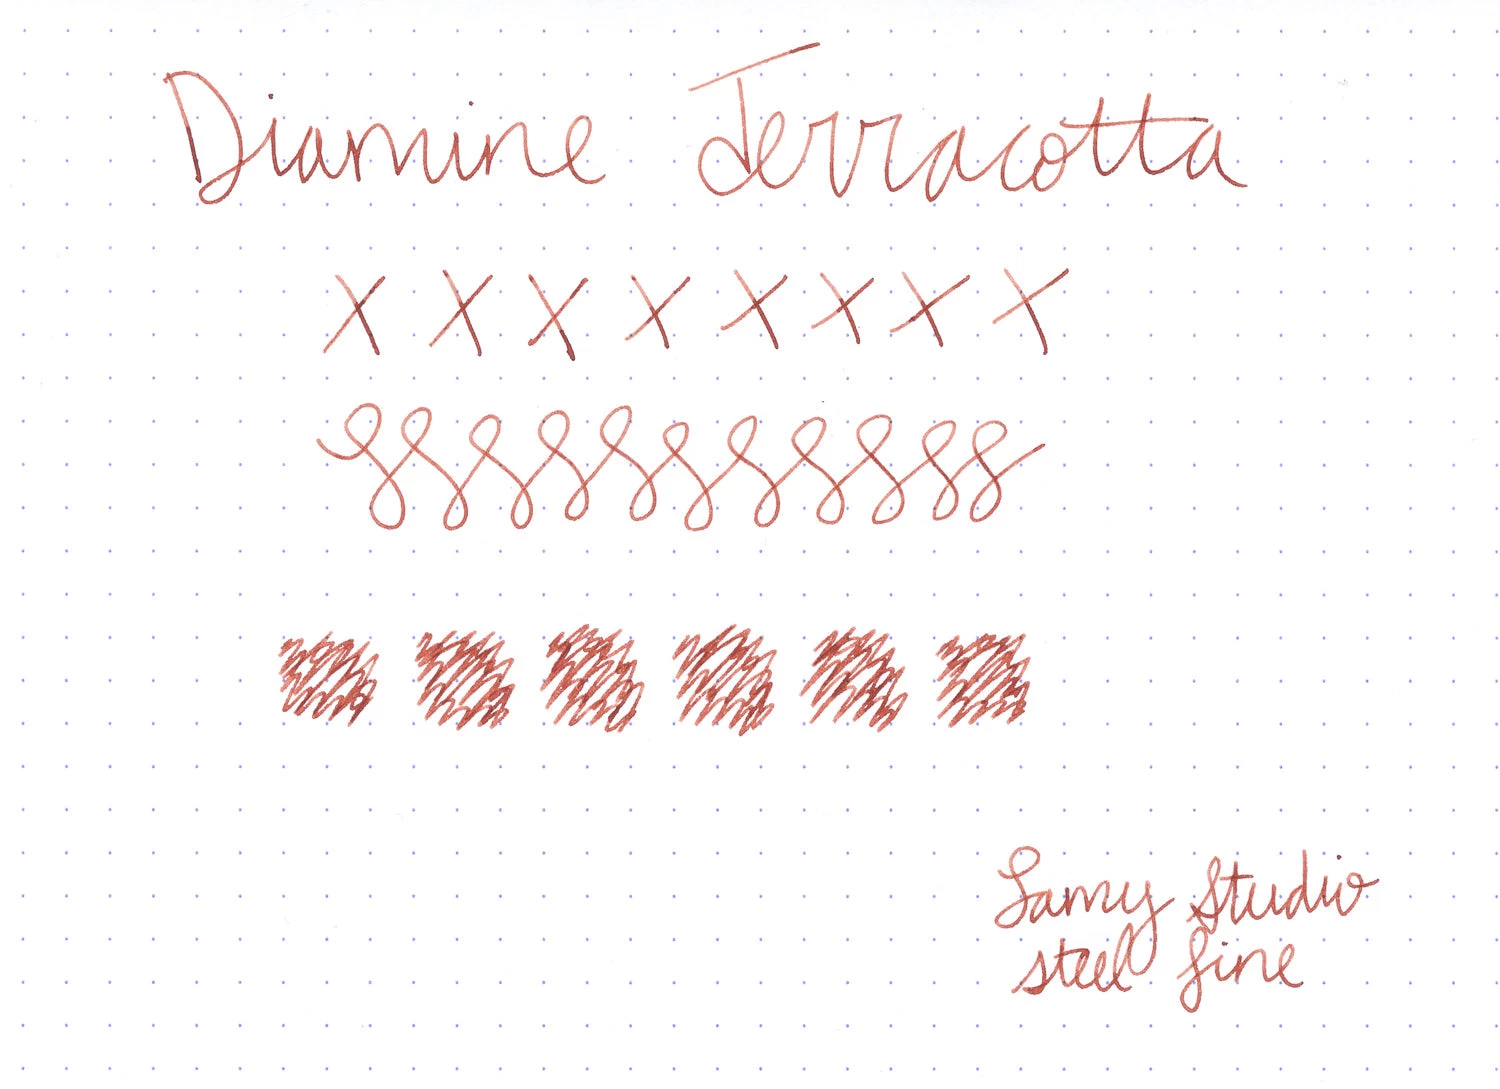 Diamine Terracotta
X X X X X X X X
Lamy Studio
steel fine